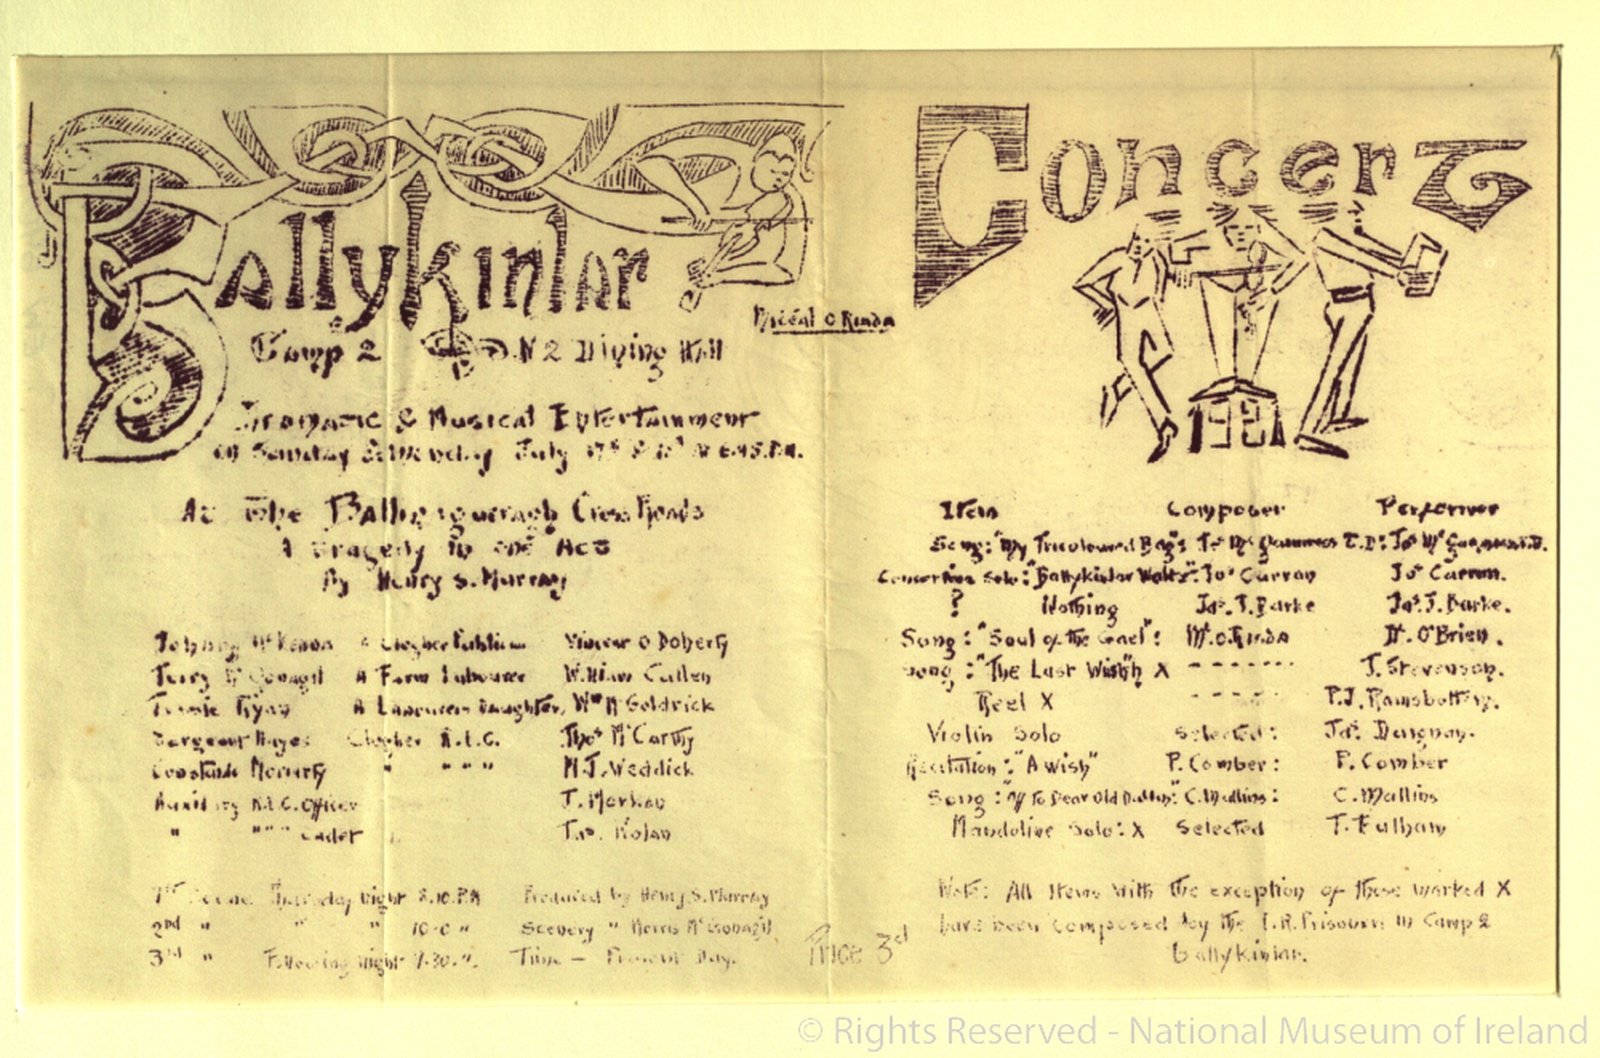 Ballykinlar
Camp 2 No 2 Dining Hall
Mícéal O Rinda
Dramatic & Musical Entertainment
on Sunday & Monday July 17th & 18th at 6.45.P.M.
At The Cross Roads
A Tragedy in one Act
By Henry S. Murray
Johnny McKenna A Clogher Vincent O Doherty
Terry McGonagil A Farm Labourer William Cullen
Ryan A Labourers Daughter, Wm McGoldrick
Sergeant Hayes Clogher R.I.C. Thos McCarthy
Constable Moriarty " " " " M.J. Weddick
Auxiliary R.I.C. Officer J. Morkan
" " " " Cadet Jas. Nolan
1st Scene Thursday Night 8.10.P.M Produced by Henry S. Murray
2nd " " " 10-0 " Scenery " Morris McGonagil
3rd " Following Night 7.30.". Time — Present Day.
Price 3d
Concert
1921
Item Composer Performer
Song: "My Tricoloured
Concertina Solo: "Ballykinlar Waltz": Jos Curran Jos Curran.
? Nothing Jas. J. Burke Jas. J. Burke.
Song: "Soul of the Gael": Ml. O.Rinda Ml. O'Brien.
Song: "The Last Wish" X - - - - - - - J. Stevenson.
Reel X - - - - - - P.J. Ramsbottom.
Violin Solo Selected: Jas. Duignan.
Recitation: "A Wish" P. Comber: P. Comber
Song: "Off To Dear Old Dublin". C. Mullins: C. Mullins
Mandoline Solo: X Selected T. Fulham
Note: All Items with the exception of those marked X
have been composed by the I.R. Prisoners in Camp 2
Ballykinlar.
© Rights Reserved - National Museum of Ireland